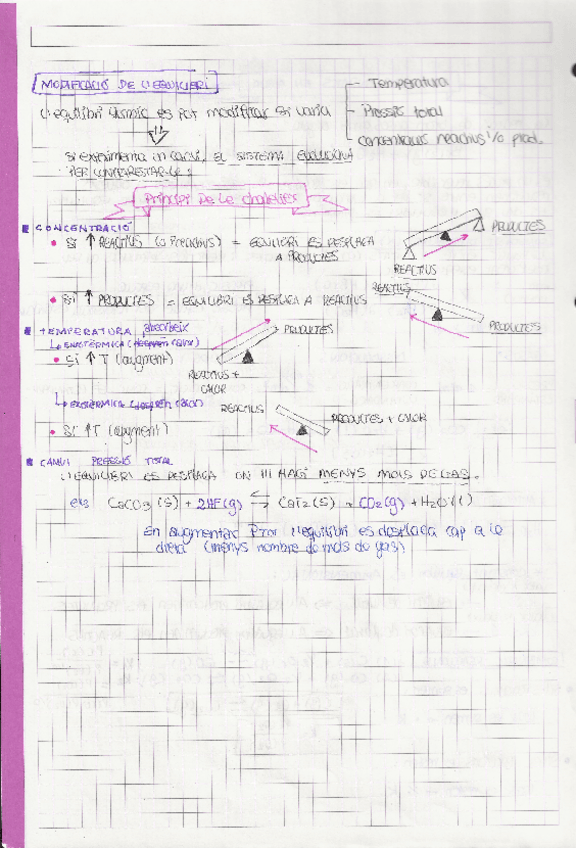 MODIFICACIÓ DE L'EQUILIBRI
L'equilibri químic es pot modificar si varia
- Temperatura
- Pressió total
- Concentracions reactius i/o prod.
Si experimenta un canvi, EL SISTEMA EVOLUCIONA
PER CONTRARESTAR-LO.
Principi de Le Chatelier
CONCENTRACIÓ
• SI ↑ REACTIUS = EQUILIBRI ES DESPLAÇA
A PRODUCTES
PRODUCTES
REACTIUS
• SI ↑ PRODUCTES = EQUILIBRI ES DESPLAÇA A REACTIUS
REACTIUS
PRODUCTES
TEMPERATURA absorbeix
↳ ENDOTÈRMICA (desprèn calor)
• SI ↑ T (augment)
PRODUCTES
REACTIUS +
CALOR
↳ EXOTÈRMICA (desprèn calor)
• SI ↑ T (augment)
REACTIUS
PRODUCTES + CALOR
CANVI PRESSIÓ TOTAL
L'EQUILIBRI ES DESPLAÇA ON HI HAGI MENYS MOLS DE GAS.
ex: CaCO3 (s) + 2HF(g) ⇄ CaF2(s) + CO2(g) + H2O(l)
En augmentar Ptot l'equilibri es desplaça cap a la
dreta (menys nombre de mols de gas)